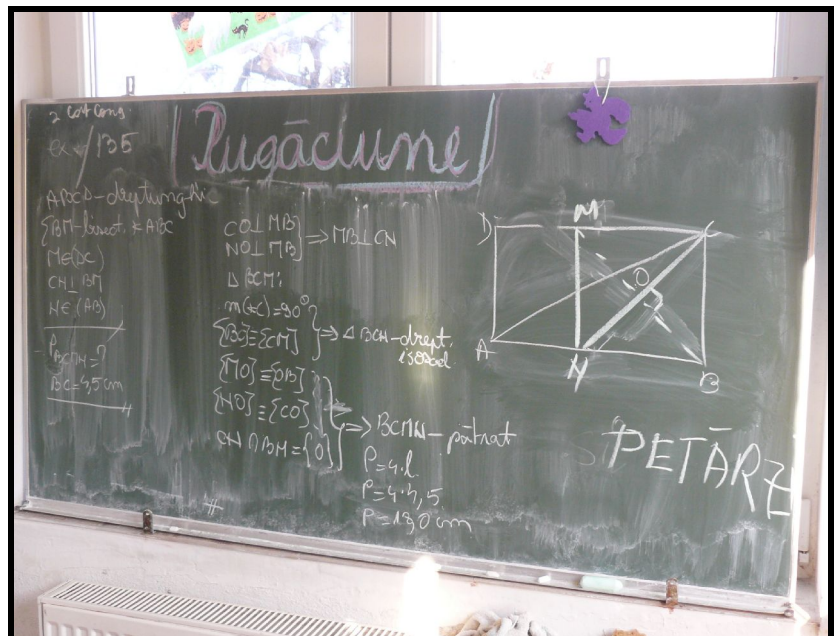 2 cat cong.
ex 4/135
Rugăciune
ABCD-dreptunghic
{BM-bisect. ∢ABC
M∈(DC)
CN⊥BM
N∈(AB)
P BCMN=?
BC=4,5cm
CO⊥MB}
NO⊥MB} ⇒ MB⊥CN
Δ BCM:
m(∢C)=90°
[BC]≡[CM] ⇒ Δ BCM-drept. isoscel
[MO]≡[OB]
[NO]≡[CO]
CN∩BM={O} ⇒ BCMN-pătrat
P=4·l
P=4·4,5
P=18,0cm
D M C
O
A N B
PETĂRZ